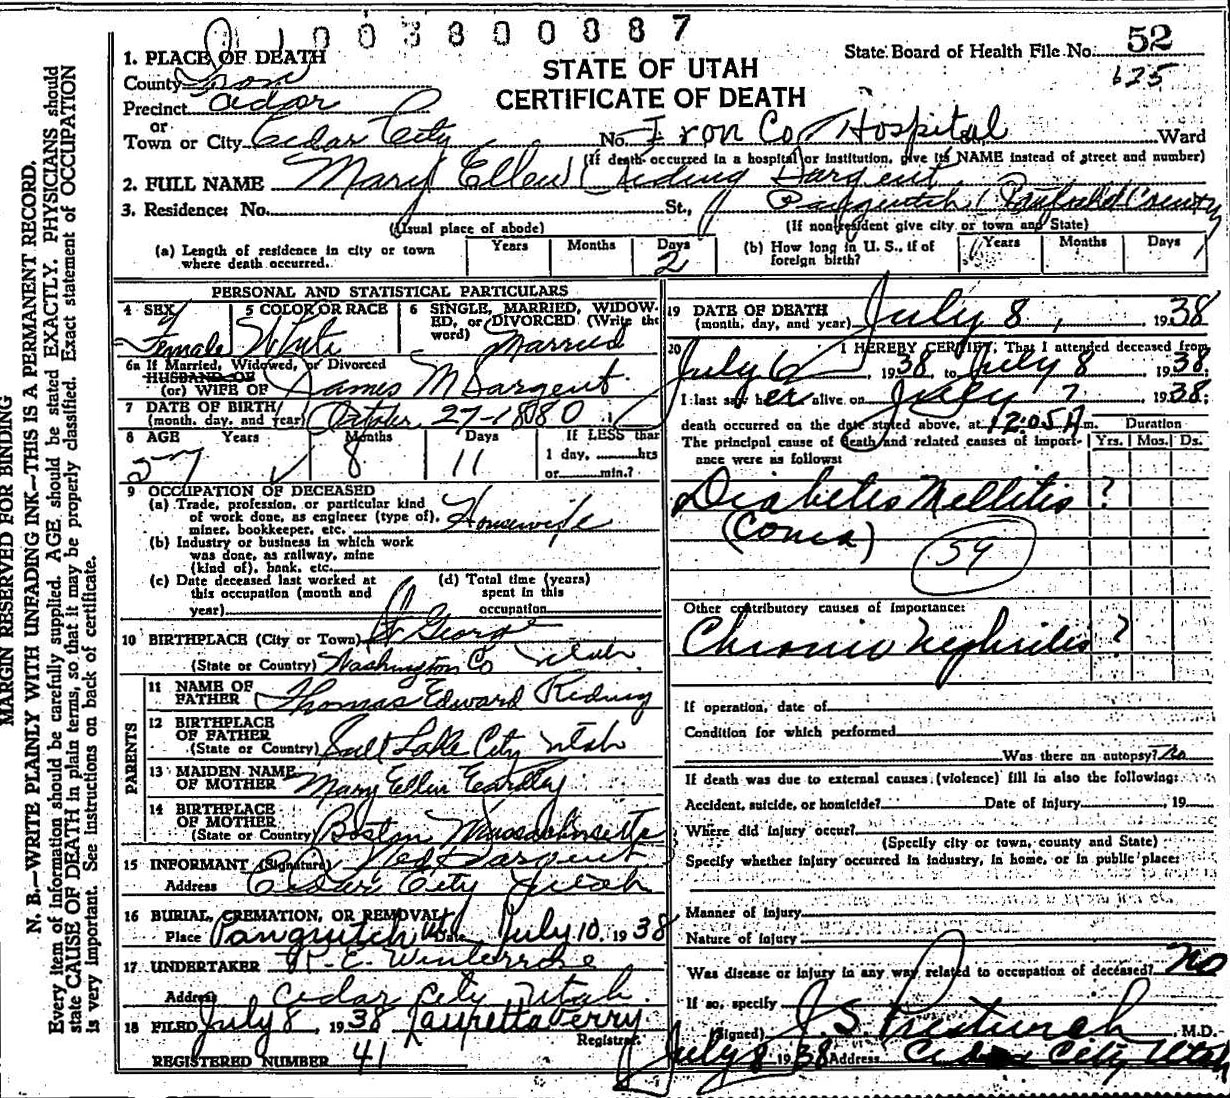 0 1 0 0 3 8 0 0 0 8 7
State Board of Health File No. 52
625
STATE OF UTAH
CERTIFICATE OF DEATH
1. PLACE OF DEATH
County Iron
Precinct Cedar
or
Town or City Cedar City No. Iron Co Hospital Ward
(If death occurred in a hospital or institution, give its NAME instead of street and number)
2. FULL NAME Mary Ellen Riding Sargent
3. Residence: No. St., Panguitch, Garfield County
(Usual place of abode) (If non-resident give city or town and State)
(a) Length of residence in city or town where death occurred. Years Months Days 2
(b) How long in U. S., if of foreign birth? Years Months Days
PERSONAL AND STATISTICAL PARTICULARS
4 SEX Female
5 COLOR OR RACE White
6 SINGLE, MARRIED, WIDOWED, or DIVORCED (Write the word) Married
6a If Married, Widowed, or Divorced
HUSBAND OF
(or) WIFE OF James M Sargent
7 DATE OF BIRTH
(month, day, and year) October 27-1880
8 AGE Years Months Days If LESS than
57 8 11 1 day, hrs
or min.?
9 OCCUPATION OF DECEASED
(a) Trade, profession, or particular kind
of work done, as engineer (type of), Housewife
miner, bookkeeper, etc.
(b) Industry or business in which work
was done, as railway, mine
(kind of), bank, etc.
(c) Date deceased last worked at (d) Total time (years)
this occupation (month and spent in this
year) occupation
10 BIRTHPLACE (City or Town) St George
(State or Country) Washington Co Utah
PARENTS
11 NAME OF
FATHER Thomas Edward Riding
12 BIRTHPLACE
OF FATHER
(State or Country) Salt Lake City Utah
13 MAIDEN NAME
OF MOTHER Mary Ellen Eardley
14 BIRTHPLACE
OF MOTHER
(State or Country) Boston Massachusetts
15 INFORMANT (Signature) Ned Sargent
Address Cedar City Utah
16 BURIAL, CREMATION, OR REMOVAL
Place Panguitch Ut Date July 10, 1938
17 UNDERTAKER
Address Cedar City Utah.
18 FILED July 8, 1938 Lauretta Perry
Registrar
REGISTERED NUMBER 41
19 DATE OF DEATH
(month, day, and year) July 8, 1938
20 I HEREBY CERTIFY, That I attended deceased from
July 6, 1938, to July 8 1938;
I last saw her alive on July 7 1938;
death occurred on the date stated above, at 12:05 A m. Duration
The principal cause of death and related causes of importance were as follows: Yrs. Mos. Ds.
Diabetis Mellitis ?
(Coma)
59
Other contributory causes of importance:
Chronic nephritis ?
If operation, date of
Condition for which performed
Was there an autopsy? No
If death was due to external causes (violence) fill in also the following:
Accident, suicide, or homicide? Date of injury , 19
Where did injury occur?
(Specify city or town, county and State)
Specify whether injury occurred in industry, in home, or in public place:
Manner of injury
Nature of injury
Was disease or injury in any way related to occupation of deceased? No
If so, specify
(Signed) J. S. Prestwich M.D.
July 8 1938 Address Cedar City Utah
MARGIN RESERVED FOR BINDING
N. B.—WRITE PLAINLY WITH UNFADING INK—THIS IS A PERMANENT RECORD.
Every item of information should be carefully supplied. AGE should be stated EXACTLY. PHYSICIANS should
state CAUSE OF DEATH in plain terms, so that it may be properly classified. Exact statement of OCCUPATION
is very important. See instructions on back of certificate.